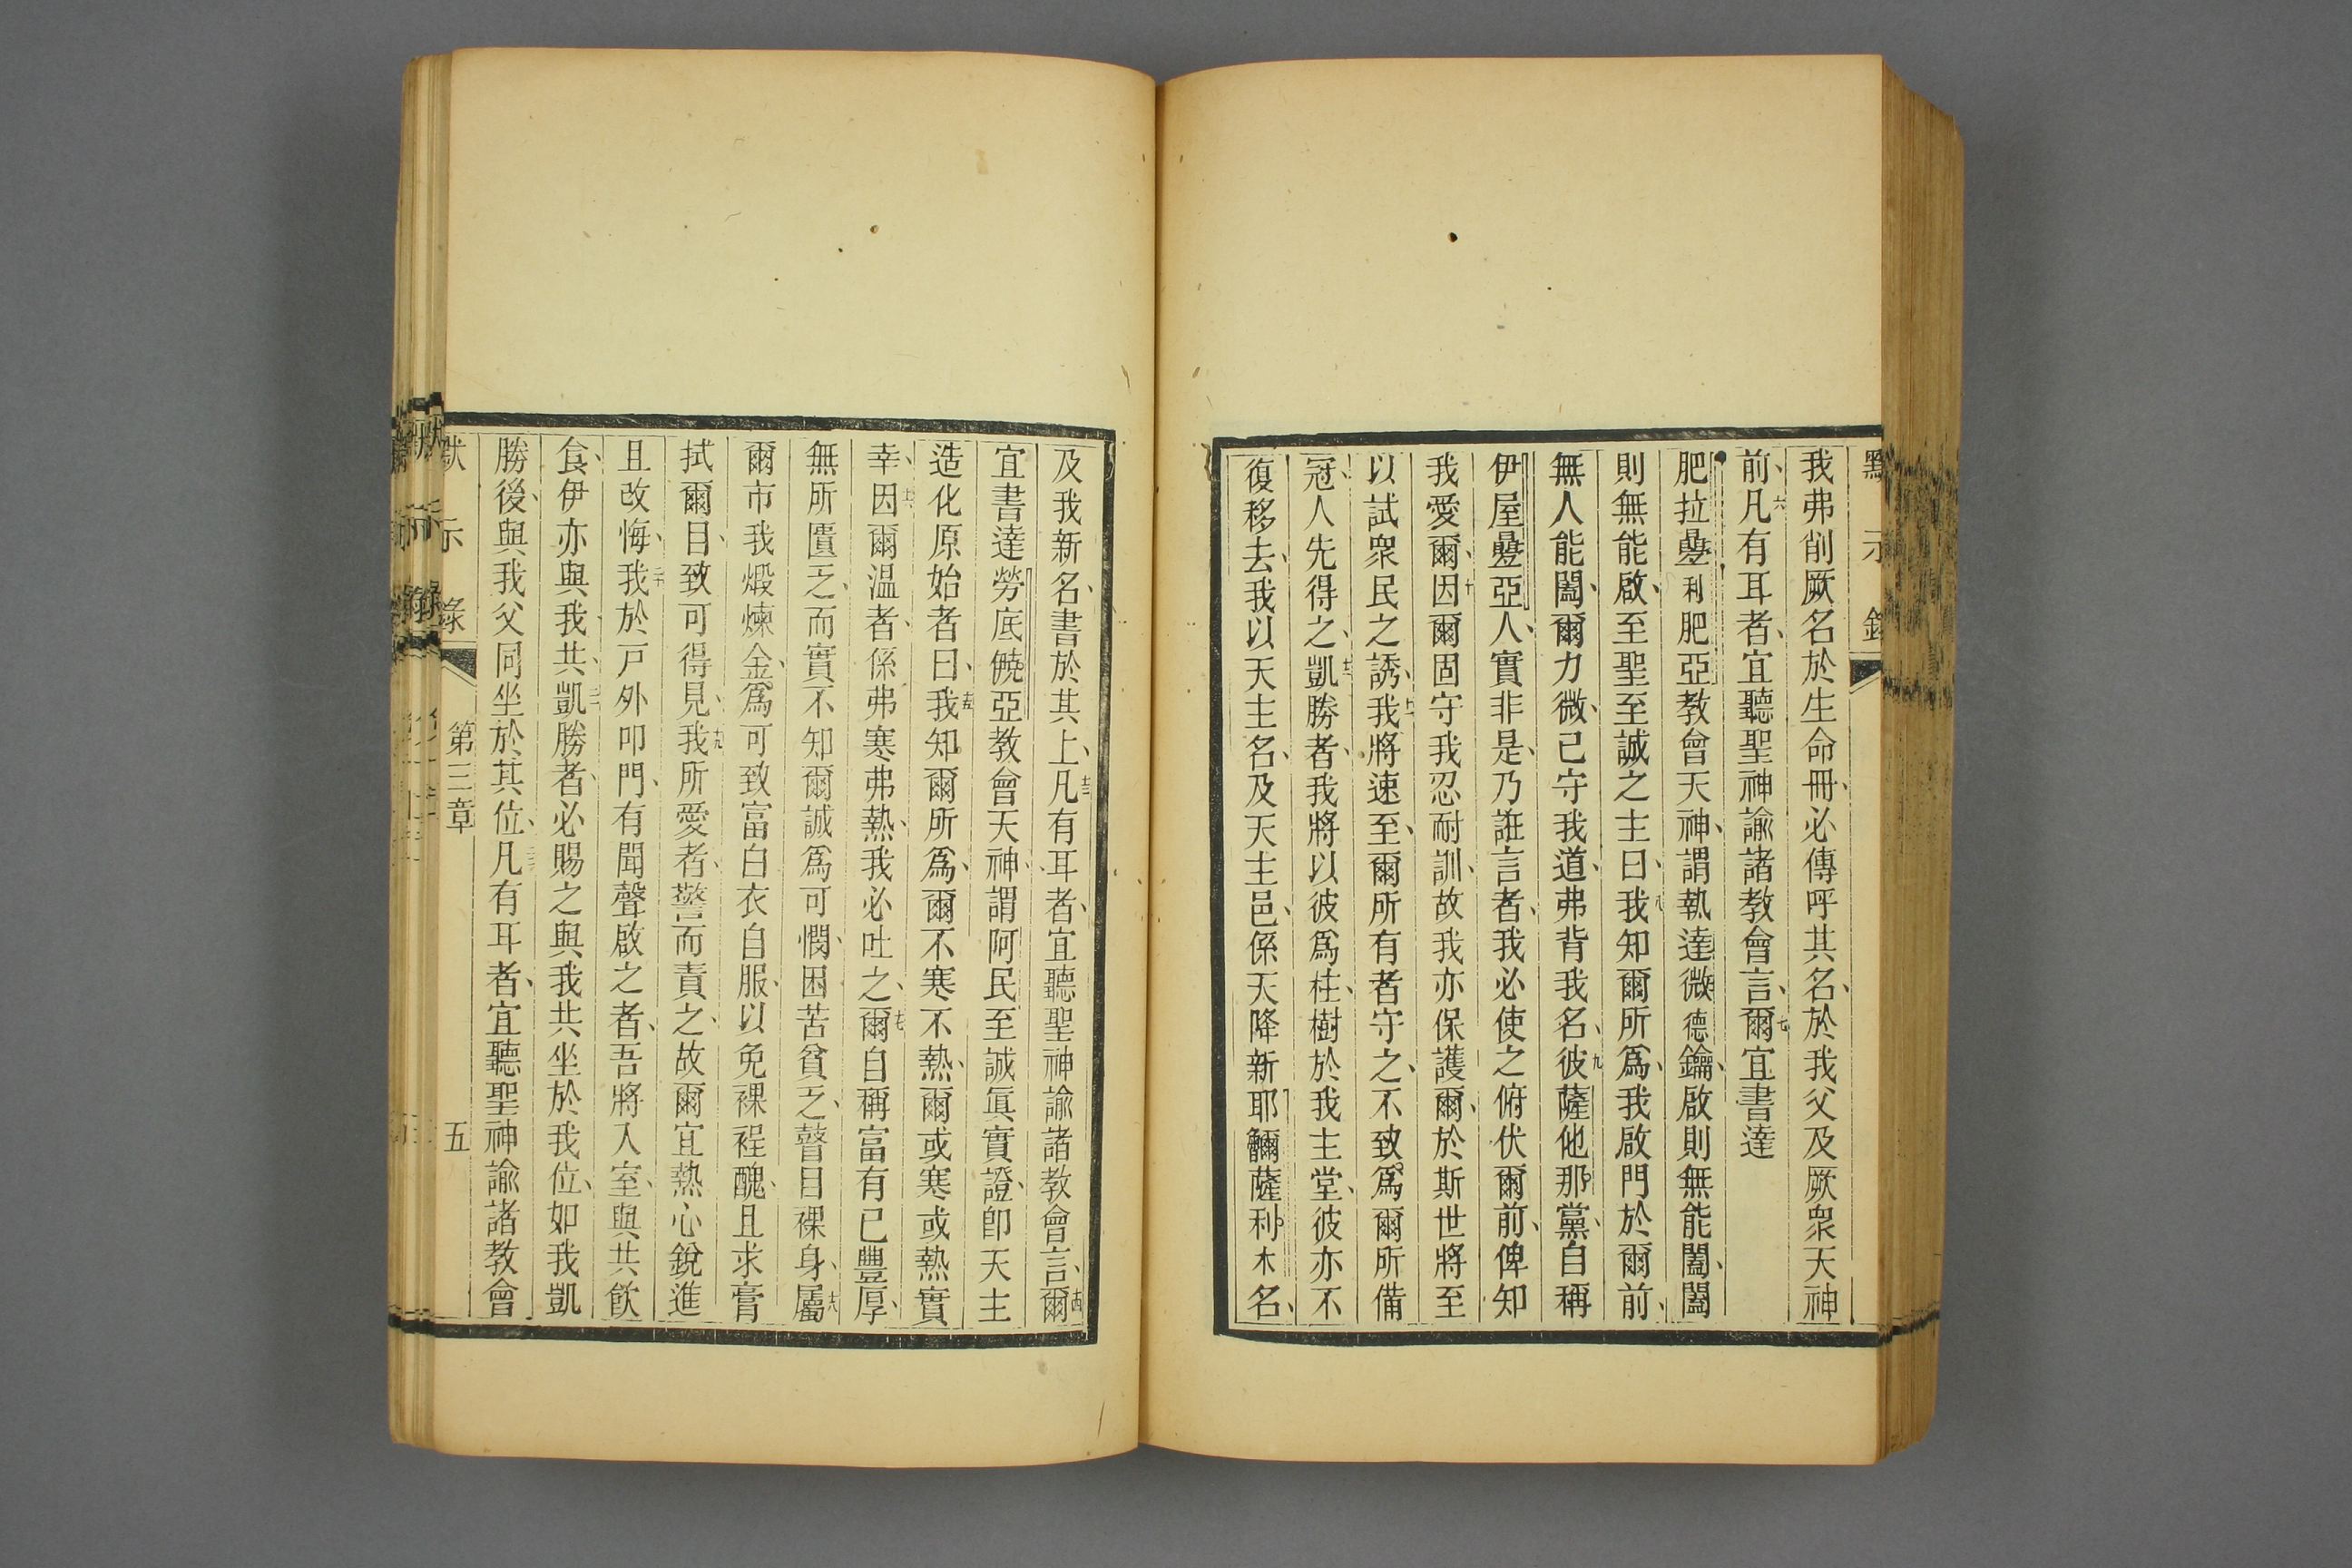 默示錄
我弗削厥名於生命冊、必傳呼其名、於我父及厥眾天神
前、六凡有耳者、宜聽聖神諭諸教會言、七爾宜書達
肥拉 利肥亞教會天神、謂執達微德鑰、啟則無能闔、闔
則無能啟、至聖至誠之主曰、八我知爾所爲、我啟門於爾前、
無人能闔、爾力微、己守我道、弗背我名、九彼薩他那黨、自稱
伊屋 亞人、實非是、乃誑言者、我必使之俯伏爾前、俾知
我愛爾、十因爾固守我忍耐訓、故我亦保護爾、於斯世將至
以試眾民之誘、十一我將速至、爾所有者守之、不致爲爾所備
冠、人先得之、十二凱勝者、我將以彼爲柱、樹於我主堂、彼亦不
復移去、我以天主名、及天主邑、係天降新耶 薩利木名、
及我新名、書於其上、十三凡有耳者、宜聽聖神諭諸教會言、十四爾
宜書達勞底 亞教會天神、謂阿民至誠眞實證、卽天主
造化原始者曰、十五我知爾所爲、爾不寒不熱、爾或寒或熱實
幸、十六因爾溫者、係弗寒弗熱、我必吐之、十七爾自稱富有已豐厚、
無所匱乏、而實不知爾誠爲可憫、困苦貧乏、瞽目裸身、十八屬
爾市我煅煉金、爲可致富、白衣自服、以免裸裎醜、且求膏
拭爾目、致可得見、十九我所愛者、警而責之、故爾宜熱心銳進
且改悔、二十我於戸外叩門、有聞聲啟之者、吾將入室、與共飲
食、伊亦與我共、二一凱勝者、必賜之與我共坐於我位、如我凱
勝後、與我父同坐於其位、二二凡有耳者、宜聽聖神諭諸教會
默示錄 第三章 五